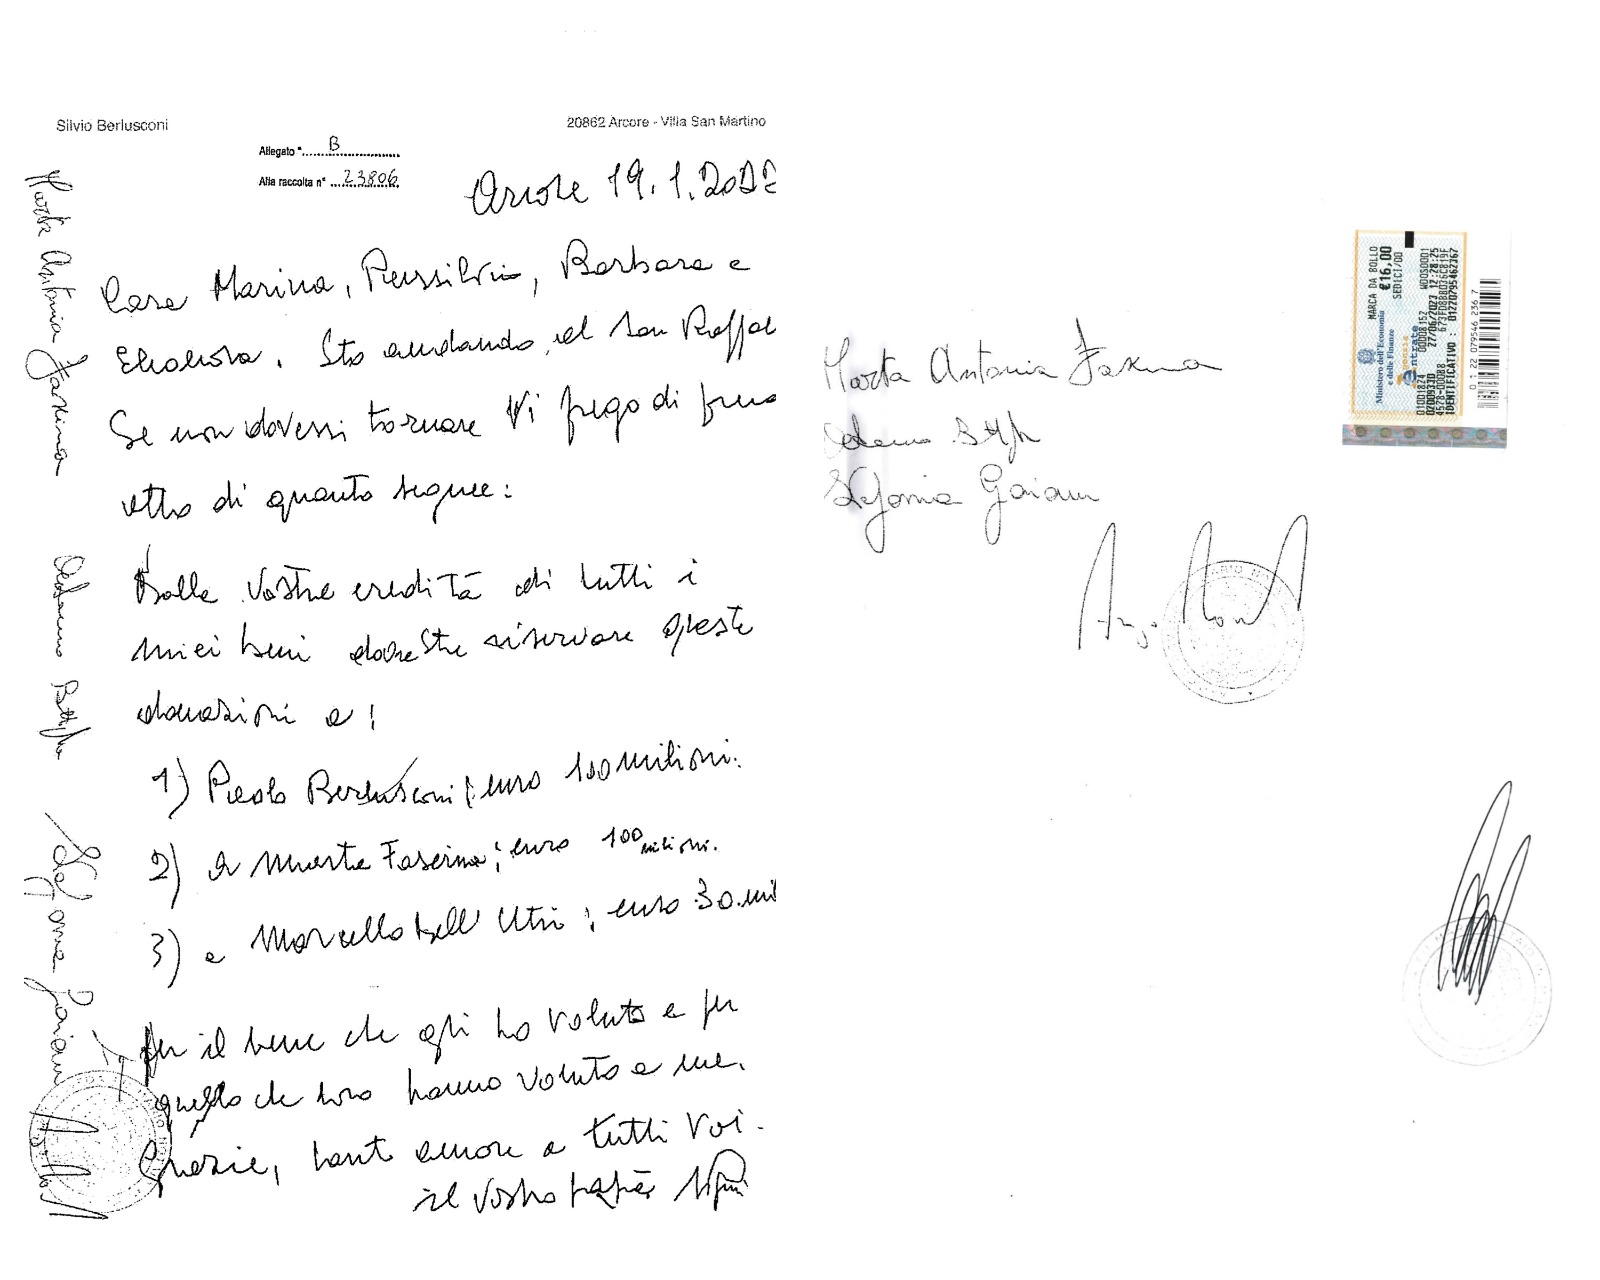 Silvio Berlusconi
20862 Arcore - Villa San Martino
Allegato "... B ...
Alla raccolta n° ... 23806
Arcore 19.1.2022
Cara Marina, Piersilvio, Barbara e
Eleonora, Sto andando al San Raffae
Se non dovessi tornare Vi prego di pren
atto di quanto segue:
Dalla Vostra eredità di tutti i
miei beni dovreste riservare queste
donazioni a:
1) Paolo Berlusconi; euro 100 milioni.
2) a Marta Fascina; euro 100 milioni.
3) a Marcello Dell'Utri; euro 30 mil
Per il bene che gli ho voluto e per
quello che loro hanno voluto a me.
Grazie, tanto amore a tutti Voi.
il Vostro papà
Marta Antonia Fascina
Stefania
Marta Antonia Fascina
Stefania
MARCA DA BOLLO
€16,00
SEDICI/00
Ministero dell'Economia
e delle Finanze
genzia
ntrate
01001824 00008152 W00S0001
27/06/2023 12:28:25
4578-00088
IDENTIFICATIVO : 01220795462367
0 1 22 079546 236 7